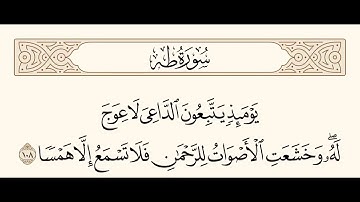 سُورَةُ طه
يَوْمَئِذٍ يَتَّبِعُونَ ٱلدَّاعِىَ لَا عِوَجَ
لَهُۥ ۖ وَخَشَعَتِ ٱلْأَصْوَاتُ لِلرَّحْمَٰنِ فَلَا تَسْمَعُ إِلَّا هَمْسًا ١٠٨